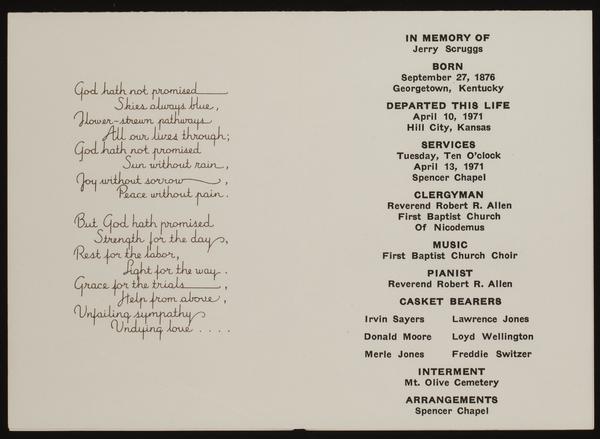 God hath not promised
Skies always blue,
Flower-strewn pathways
All our lives through;
God hath not promised
Sun without rain,
Joy without sorrow,
Peace without pain.
But God hath promised
Strength for the day,
Rest for the labor,
Light for the way.
Grace for the trials,
Help from above,
Unfailing sympathy
Undying love . . . .
IN MEMORY OF
Jerry Scruggs
BORN
September 27, 1876
Georgetown, Kentucky
DEPARTED THIS LIFE
April 10, 1971
Hill City, Kansas
SERVICES
Tuesday, Ten O'clock
April 13, 1971
Spencer Chapel
CLERGYMAN
Reverend Robert R. Allen
First Baptist Church
Of Nicodemus
MUSIC
First Baptist Church Choir
PIANIST
Reverend Robert R. Allen
CASKET BEARERS
Irvin Sayers Lawrence Jones
Donald Moore Loyd Wellington
Merle Jones Freddie Switzer
INTERMENT
Mt. Olive Cemetery
ARRANGEMENTS
Spencer Chapel